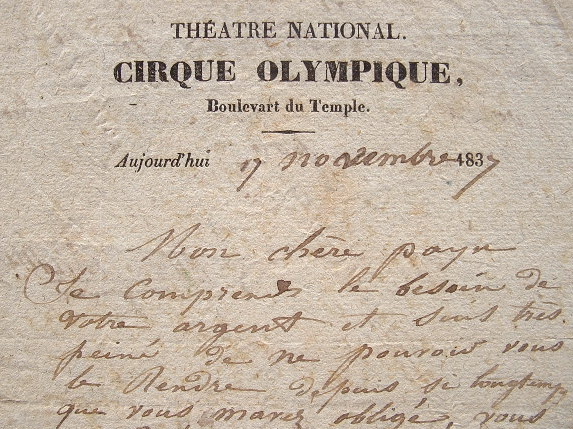 THÉATRE NATIONAL.
CIRQUE OLYMPIQUE,
Boulevart du Temple.
Aujourd'hui 17 novembre 1837
Mon chère payn
Je comprends le besoin de
votre argent et suis très
peiné de ne pouvoir vous
le Rendre depuis si longtemps
que vous mavez obligé, vous